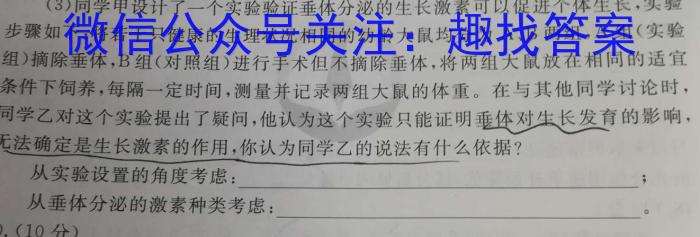 (3)同学甲设计了一个实验验证垂体分泌的生长激素可以促进个体生长,实验
微信公众号关注：趣找答案
步骤如
组)摘除垂体,B组(对照组)进行手术但不摘除垂体,将两组大鼠放在相同的适宜
条件下饲养,每隔一定时间,测量并记录两组大鼠的体重。在与其他同学讨论时,
同学乙对这个实验提出了疑问,他认为这个实验只能证明垂体对生长发育的影响,
无法确定是生长激素的作用,你认为同学乙的说法有什么依据?
从实验设置的角度考虑:;
从垂体分泌的激素种类考虑:。
(10分)